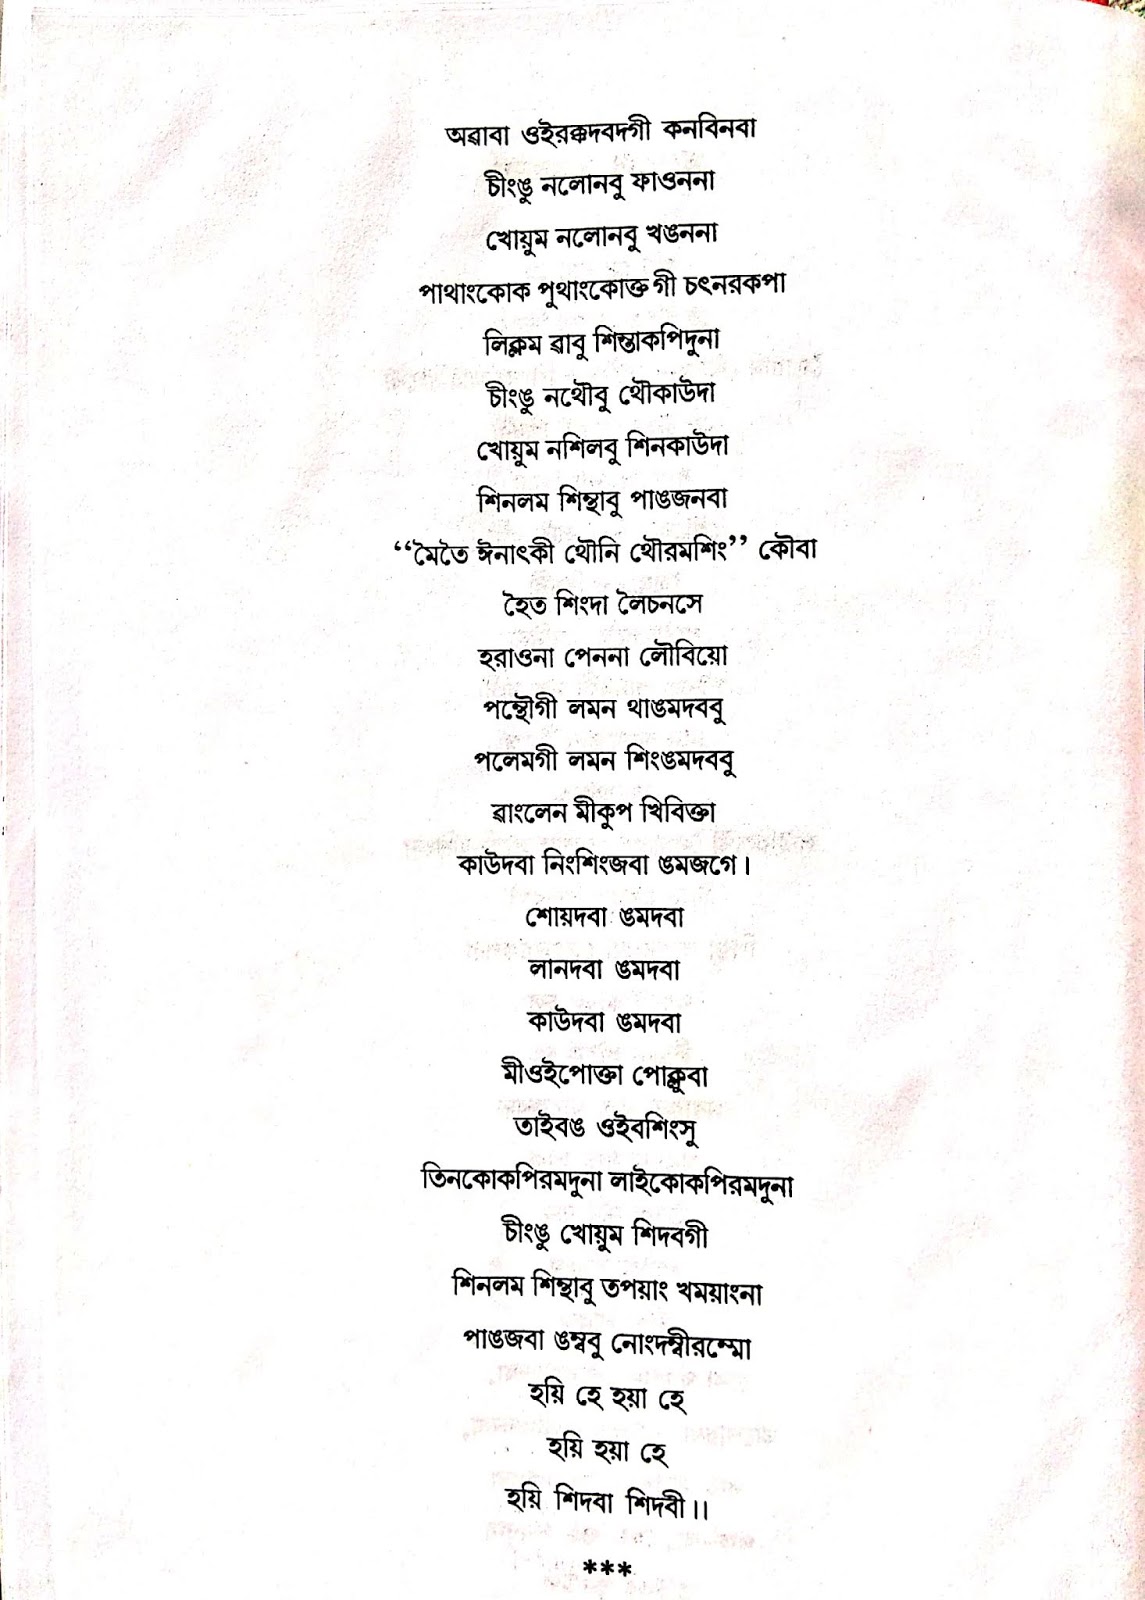 অৱাবা ওইরক্কদবদগী কনবিনবা
চীংঙু নলোনবু ফাওননা
খোয়ুম নলোনবু খঙননা
পাথাংকোক পুথাংকোক্তগী চৎনরকপা
লিক্লম ৱাবু শিন্তাকপিদুনা
চীংঙু নথৌবু থৌকাউদা
খোয়ুম নশিলবু শিনকাউদা
শিনলম শিন্থাবু পাঙজনবা
“মৈতৈ ঈনাৎকী থৌনি থৌরমশিং” কৌবা
হৈত শিংদা লৈচনসে
হরাওনা পেননা লৌবিয়ো
পন্থৌগী লমন থাঙমদববু
পলেমগী লমন শিংঙমদববু
ৱাংলেন মীকুপ খিবিক্তা
কাউদবা নিংশিংজবা ঙমজগে।
শোয়দবা ঙমদবা
লানদবা ঙমদবা
কাউদবা ঙমদবা
মীওইপোক্তা পোক্লুবা
তাইবঙ ওইবশিংসু
তিনকোকপিরমদুনা লাইকোকপিরমদুনা
চীংঙু খোয়ুম শিদবগী
শিনলম শিন্থাবু তপয়াং খময়াংনা
পাঙজবা ঙম্ববু নোংদম্বীরম্মো
হয়ি হে হয়া হে
হয়ি হয়া হে
হয়ি শিদবা শিদবী।।
***